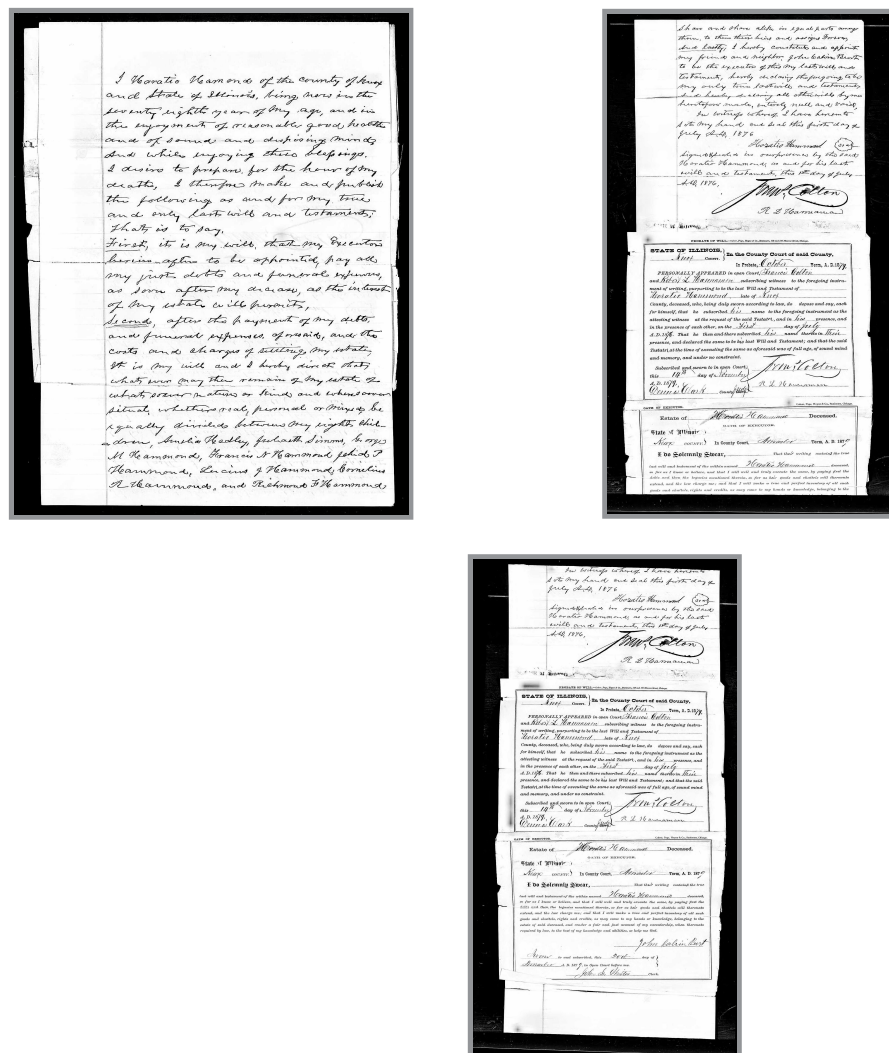 I Horatio Hamond of the county of Knox
and State of Illinois, being now in the
seventy eighth year of my age, and in
the enjoyment of reasonable good health
and of sound and disposing mind,
And while enjoying these blessings.
I desire to prepare for the hour of my
death, I therefore make and publish
the following as and for my true
and only last will and testament;
That is to say,
First, it is my will, that my Executor
herein after to be appointed, pay all
my just debts and funeral expenses,
as soon after my decease, as the interest
of my estate will permit,
Second, after the payment of my debts,
and funeral expenses, aforesaid, and the
costs and charges of settling my estate,
It is my will and I hereby direct that
whatsoever may then remain of my estate of
whatsoever nature or kind and wheresoever
situat, whether real, personal or mixed be
equally divided between my eights chil-
dren, Amelia Hadley, Simms, George
M Hammond, Francis N Hammond P
Hammond, Lucius J Hammond, Cornelius
R Hammond, and Richmond F Hammond
share and share alike in equal parts among
them, to them their heirs and assigns forever,
And lastly, I hereby constitute and appoint
my friend and neighbor John Calvin
to be the executor of this my last will and
testament, hereby declaring the foregoing to be
my only true last will and testament
and hereby declaring all other wills by me
heretofore made, entirely null and void.
In witness whereof I have hereunto
set my hand and seal this first day of
July A.D. 1876
Horatio Hammond (seal)
Signed & sealed in our presence by the said
Horatio Hammond, as and for his last
will and testament, this 1st day of July
A.D. 1876,
Colton
R L Hannaman
PROBATE OF WILL.
STATE OF ILLINOIS,
Knox County. In the County Court of said County,
In Probate, October Term, A. D. 1879.
PERSONALLY APPEARED in open Court Francis Colton
and Robert L Hannaman subscribing witness to the foregoing instru-
ment of writing, purporting to be the last Will and Testament of
Horatio Hammond late of Knox
County, deceased, who, being duly sworn according to law, do depose and say, each
for himself, that he subscribed his name to the foregoing instrument as the
attesting witness at the request of the said Testator, and in his presence, and
in the presence of each other, on the First day of July
A. D. 1876. That he then and there subscribed his name therein in their
presence, and declared the same to be his last Will and Testament; and that the said
Testator, at the time of executing the same as aforesaid was of full age, of sound mind
and memory, and under no constraint.
Subscribed and sworn to in open Court,
this 14th day of November
A. D. 1879.
Clark County Judge
Colton
R L Hannaman
OATH OF EXECUTOR.
Estate of Horatio Hammond Deceased.
OATH OF EXECUTOR.
State of Illinois
Knox COUNTY. In County Court, November Term, A. D. 1879
I do Solemnly Swear, That this writing contains the true
last will and testament of the within named Horatio Hammond deceased,
so far as I know or believe, and that I will well and truly execute the same, by paying first the
debts and then the legacies mentioned therein, as far as his goods and chattels will thereunto
extend, and the law charge me; and that I will make a true and perfect inventory of all such
goods and chattels, rights and credits, as may come to my hands or knowledge, belonging to the
In witness whereof I have hereunto
set my hand and seal this first day of
July A.D. 1876
Horatio Hammond (seal)
Signed & sealed in our presence by the said
Horatio Hammond, as and for his last
will and testament, this 1st day of July
A.D. 1876,
Colton
R L Hannaman
PROBATE OF WILL.
STATE OF ILLINOIS,
Knox County. In the County Court of said County,
In Probate, October Term, A. D. 1879.
PERSONALLY APPEARED in open Court Francis Colton
and Robert L Hannaman subscribing witness to the foregoing instru-
ment of writing, purporting to be the last Will and Testament of
Horatio Hammond late of Knox
County, deceased, who, being duly sworn according to law, do depose and say, each
for himself, that he subscribed his name to the foregoing instrument as the
attesting witness at the request of the said Testator, and in his presence, and
in the presence of each other, on the First day of July
A. D. 1876. That he then and there subscribed his name therein in their
presence, and declared the same to be his last Will and Testament; and that the said
Testator, at the time of executing the same as aforesaid was of full age, of sound mind
and memory, and under no constraint.
Subscribed and sworn to in open Court,
this 14th day of November
A. D. 1879.
Clark County Judge
Colton
R L Hannaman
OATH OF EXECUTOR.
Estate of Horatio Hammond Deceased.
OATH OF EXECUTOR.
State of Illinois
Knox COUNTY. In County Court, November Term, A. D. 1879
I do Solemnly Swear, That this writing contains the true
last will and testament of the within named Horatio Hammond deceased,
so far as I know or believe, and that I will well and truly execute the same, by paying first the
debts and then the legacies mentioned therein, as far as his goods and chattels will thereunto
extend, and the law charge me; and that I will make a true and perfect inventory of all such
goods and chattels, rights and credits, as may come to my hands or knowledge, belonging to the
estate of said deceased, and render a fair and just account of my executorship, when thereunto
required by law, to the best of my knowledge and abilities, so help me God.
John Calvin
Sworn to and subscribed, this 22nd day of
November A. D. 1879, in Open Court before me.
John Clerk